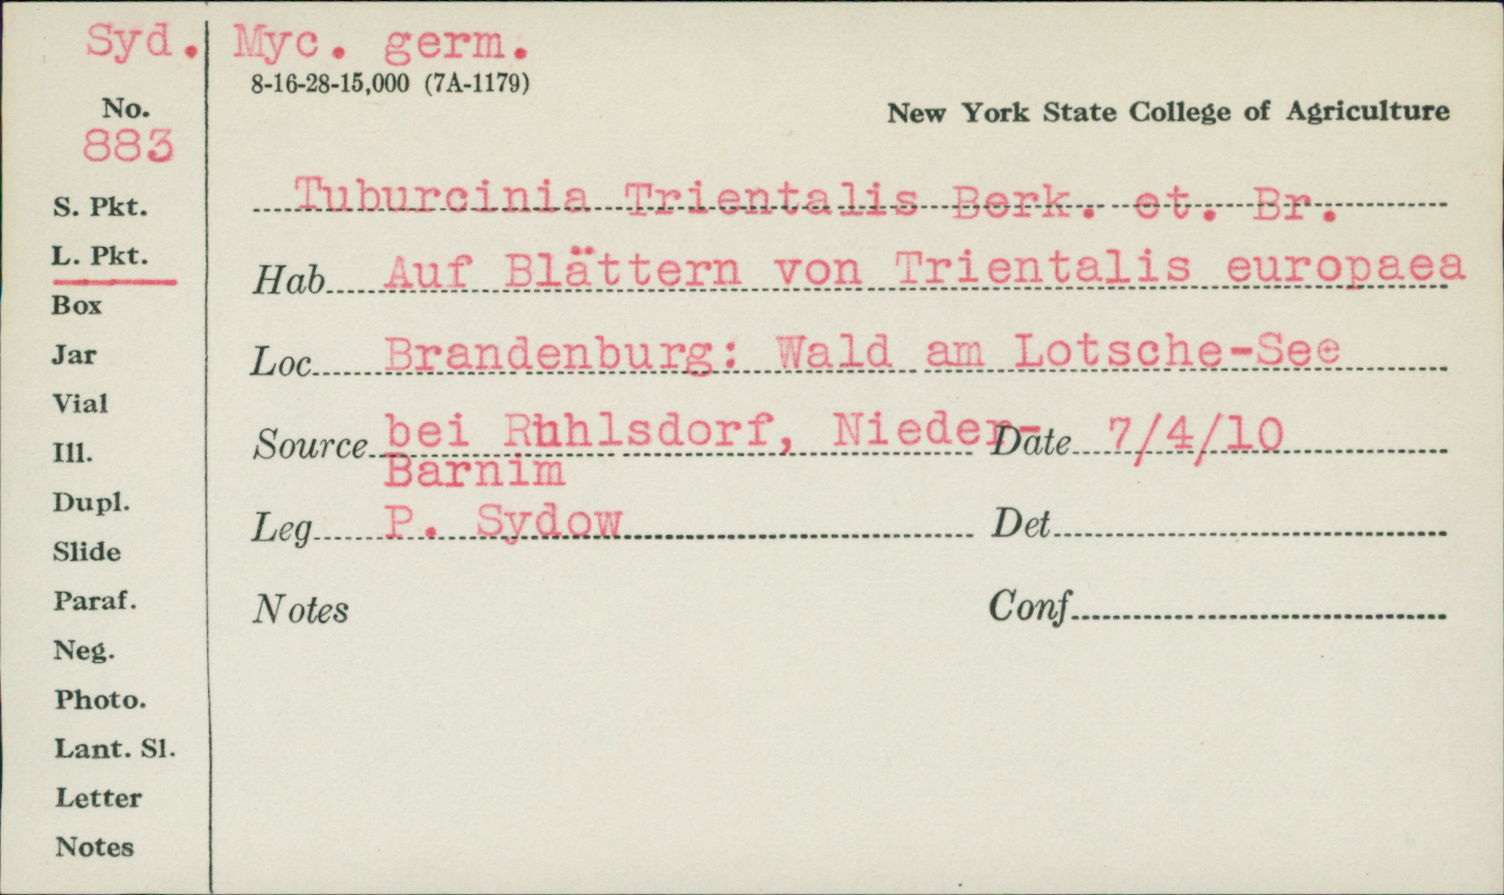 Syd. Myc. germ.
8-16-28-15,000 (7A-1179)
No.
883
New York State College of Agriculture
S. Pkt.
L. Pkt.
Box
Jar
Vial
Ill.
Dupl.
Slide
Paraf.
Neg.
Photo.
Lant. Sl.
Letter
Notes
Tuburcinia Trientalis Berk. et. Br.
Hab Auf Blättern von Trientalis europaea
Loc Brandenburg: Wald am Lotsche-See
Source bei Ruhlsdorf, Nieder- Date 7/4/10
Barnim
Leg P. Sydow Det
Notes Conf